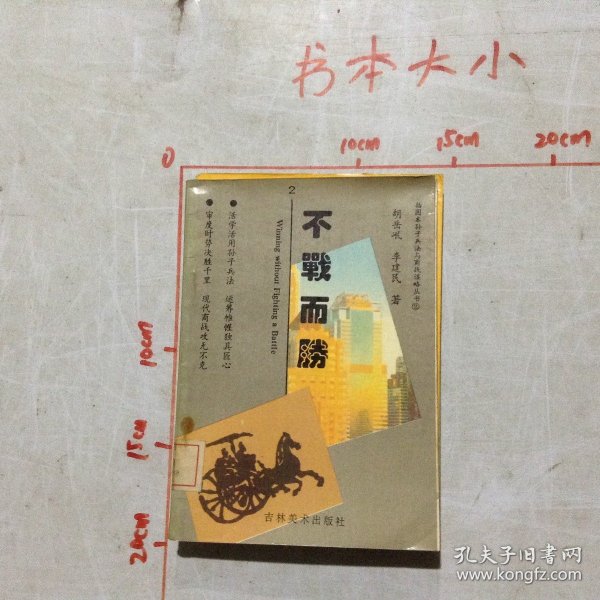 书本大小
0
10cm
15cm
20cm
10cm
15cm
20cm
插图本孙子兵法与商战谋略丛书②
胡岳岷 李建民 著
不戰而勝
2
Winning without Fighting a Battle
●活学活用孙子兵法 运筹帷幄独具匠心
●审度时势决胜千里 现代商战攻无不克
吉林美术出版社
孔夫子旧书网
www.kongfz.com